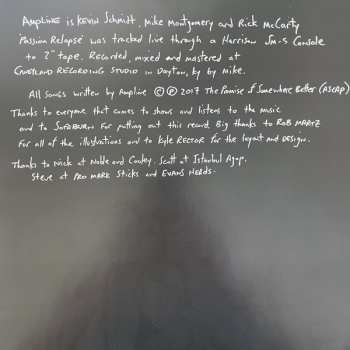 Ampline is Kevin Schmidt, Mike Montgomery and Rick McCarty
"Passion Relapse" was tracked live through a Harrison Sm-5 Console
to 2" tape. Recorded, mixed and mastered at
Candyland Recording Studio in Dayton, Ky by Mike.
All songs written by Ampline © ℗ 2017 The Promise of Somewhere Better (ASCAP)
Thanks to everyone that comes to shows and listens to the music
and to Sofaburn for putting out this record. Big thanks to Rob Martz
for all of the illustrations and to Kyle Rector for the layout and design.
Thanks to Nick at Noble and Cooley. Scott at Istanbul Agop.
Steve at Pro Mark Sticks and Evans Heads.